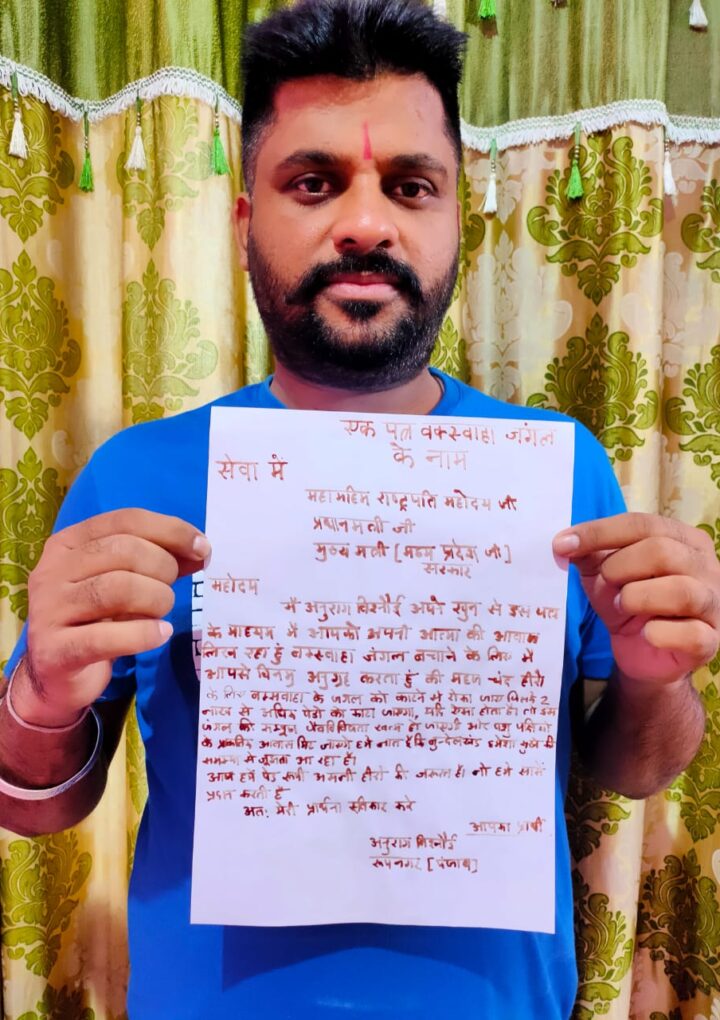 एक पत्र वक्स्वाहा जंगल
के नाम
सेवा में
महामहिम राष्ट्रपति महोदय जी
प्रधानमत्री जी
मुख्य मत्री [मध्य प्रदेश जी]
सरकार
महोदय
मैं अनुराग विश्नोई अपने खुन से इस पत्र
के माध्यम में आपको अपनी आत्मा की आवाज
लिख रहा हुं वक्स्वाहा जंगल बचाने के लिए में
आपसे विनम्र अनुग्रह करता हुं की महज चंद हीरो
के लिए बक्सवाहा के जगल को काटने से रोका जाए जिसमे 2
लाख से अधिक पेडो को काटा जाएगा, यदि ऐसा होता है। तो इस
जंगल की सम्पुर्ण जैवविविधता खत्म हो जाएगी और पशु पक्षियो
के प्रकृतिक आवास मिट जाएगे हमे ज्ञात है कि बुन्देलखंड हमेशा सुखे की
समस्या से जुझता आ रहा है।
आज हमे पेड रूपी असली हीरो की जरूरत है। जो हमे सासे
प्रदान करती है
अत: मेरी प्रार्थना स्विकार करे
आपका प्रार्थी
अनुराग विश्नोई
रूपनगर [पंजाब]